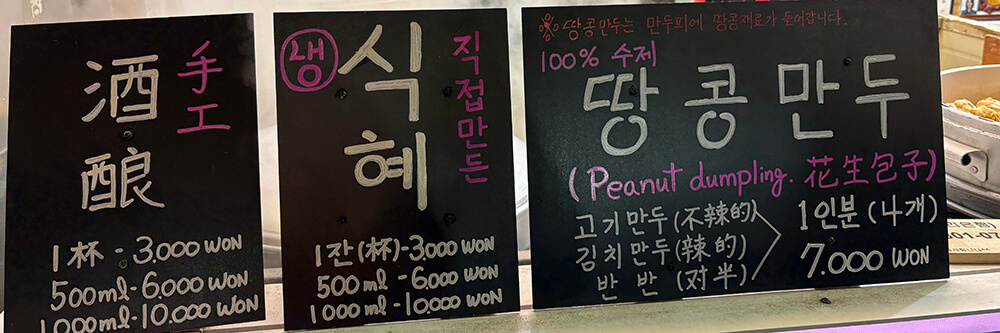 酒酿
手工
1杯 - 3.000 WON
500ml - 6.000 WON
1000ml - 10.000 WON
냉
식혜
직접만든
1잔(杯) - 3000 WON
500ml - 6.000 WON
1000ml - 10.000 WON
※ 땅콩만두는 만두피에 땅콩재료가 들어갑니다.
100% 수제
땅콩만두
(Peanut dumpling. 花生包子)
고기만두(不辣的)
김치만두(辣的)
반반(对半)
1인분(4개)
7.000 WON